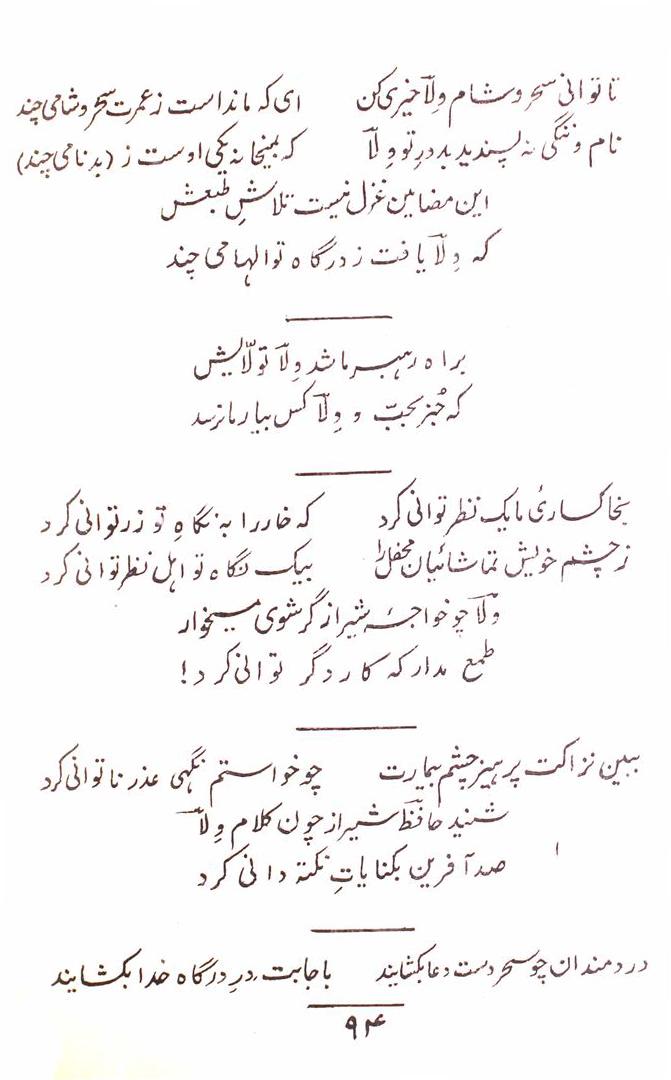 تا توانی سحر و شام وِلاؔ خیری کن ای که ماند است ز عمرت سحر و شامی چند
نام و ننگی نه پسندید بدرِ تو وِلاؔ که بمیخانه یکی اوست ز (بدنامی چند)
این مضامین غزل نیست تلاشِ طبعش
که وِلاؔ یافت ز درگاه تو الهامی چند
براه رهبر ما شد وِلاؔ تولّایش
که جُز بحبّ و وِلاؔ کس بیار ما نرسد
بخاکساریٔ ما یک نظر توانی کرد که خار را به نگاهِ تو زر توانی کرد
ز چشم خویش تماشائیان محفل را بیک نگاه تو اهل نظر توانی کرد
ولاؔ چو خواجهٔ شیراز گر شوی میخوار
طمع مدار که کار دگر توانی کرد!
ببین نزاکت پرهیز چشم بیمارت چو خواستم نگهی عذر ناتوانی کرد
شنید حافظؔ شیراز چون کلام وِلاؔ
صد آفرین بکنایاتِ نکته دانی کرد
دردمندان چو سحر دست دعا بکشایند باجابت، درِ درگاه خدا بکشایند
۹۴